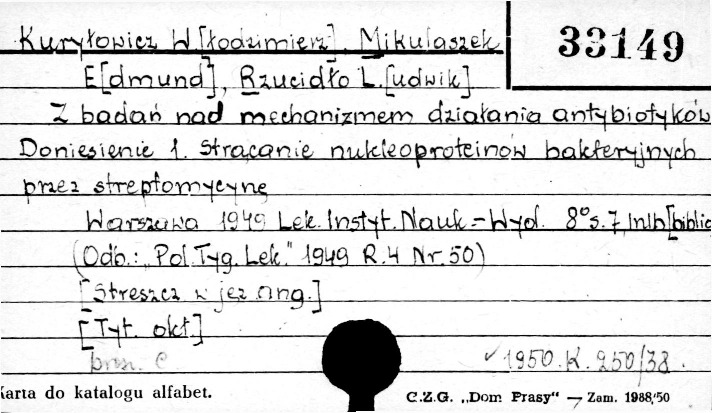 Kuryłowicz W[łodzimierz], Mikulaszek
33149
E[dmund], Rzucidło L.[udwik]
Z badań nad mechanizmem działania antybiotyków
Doniesienie 1. Strącanie nukleoproteinów bakteryjnych
przez streptomycynę
Warszawa 1949 Lek. Instyt. Nauk.-Wyd. 8° s. 7, 1nlb [biblio
(Odb.: "Pol. Tyg. Lek." 1949 R.4 Nr. 50)
[Streszcz w jęz ang.]
[Tyt. okł.]
1950. K. 250/38.
Karta do katalogu alfabet.
C.Z.G. „Dom Prasy" — Zam. 1988/50